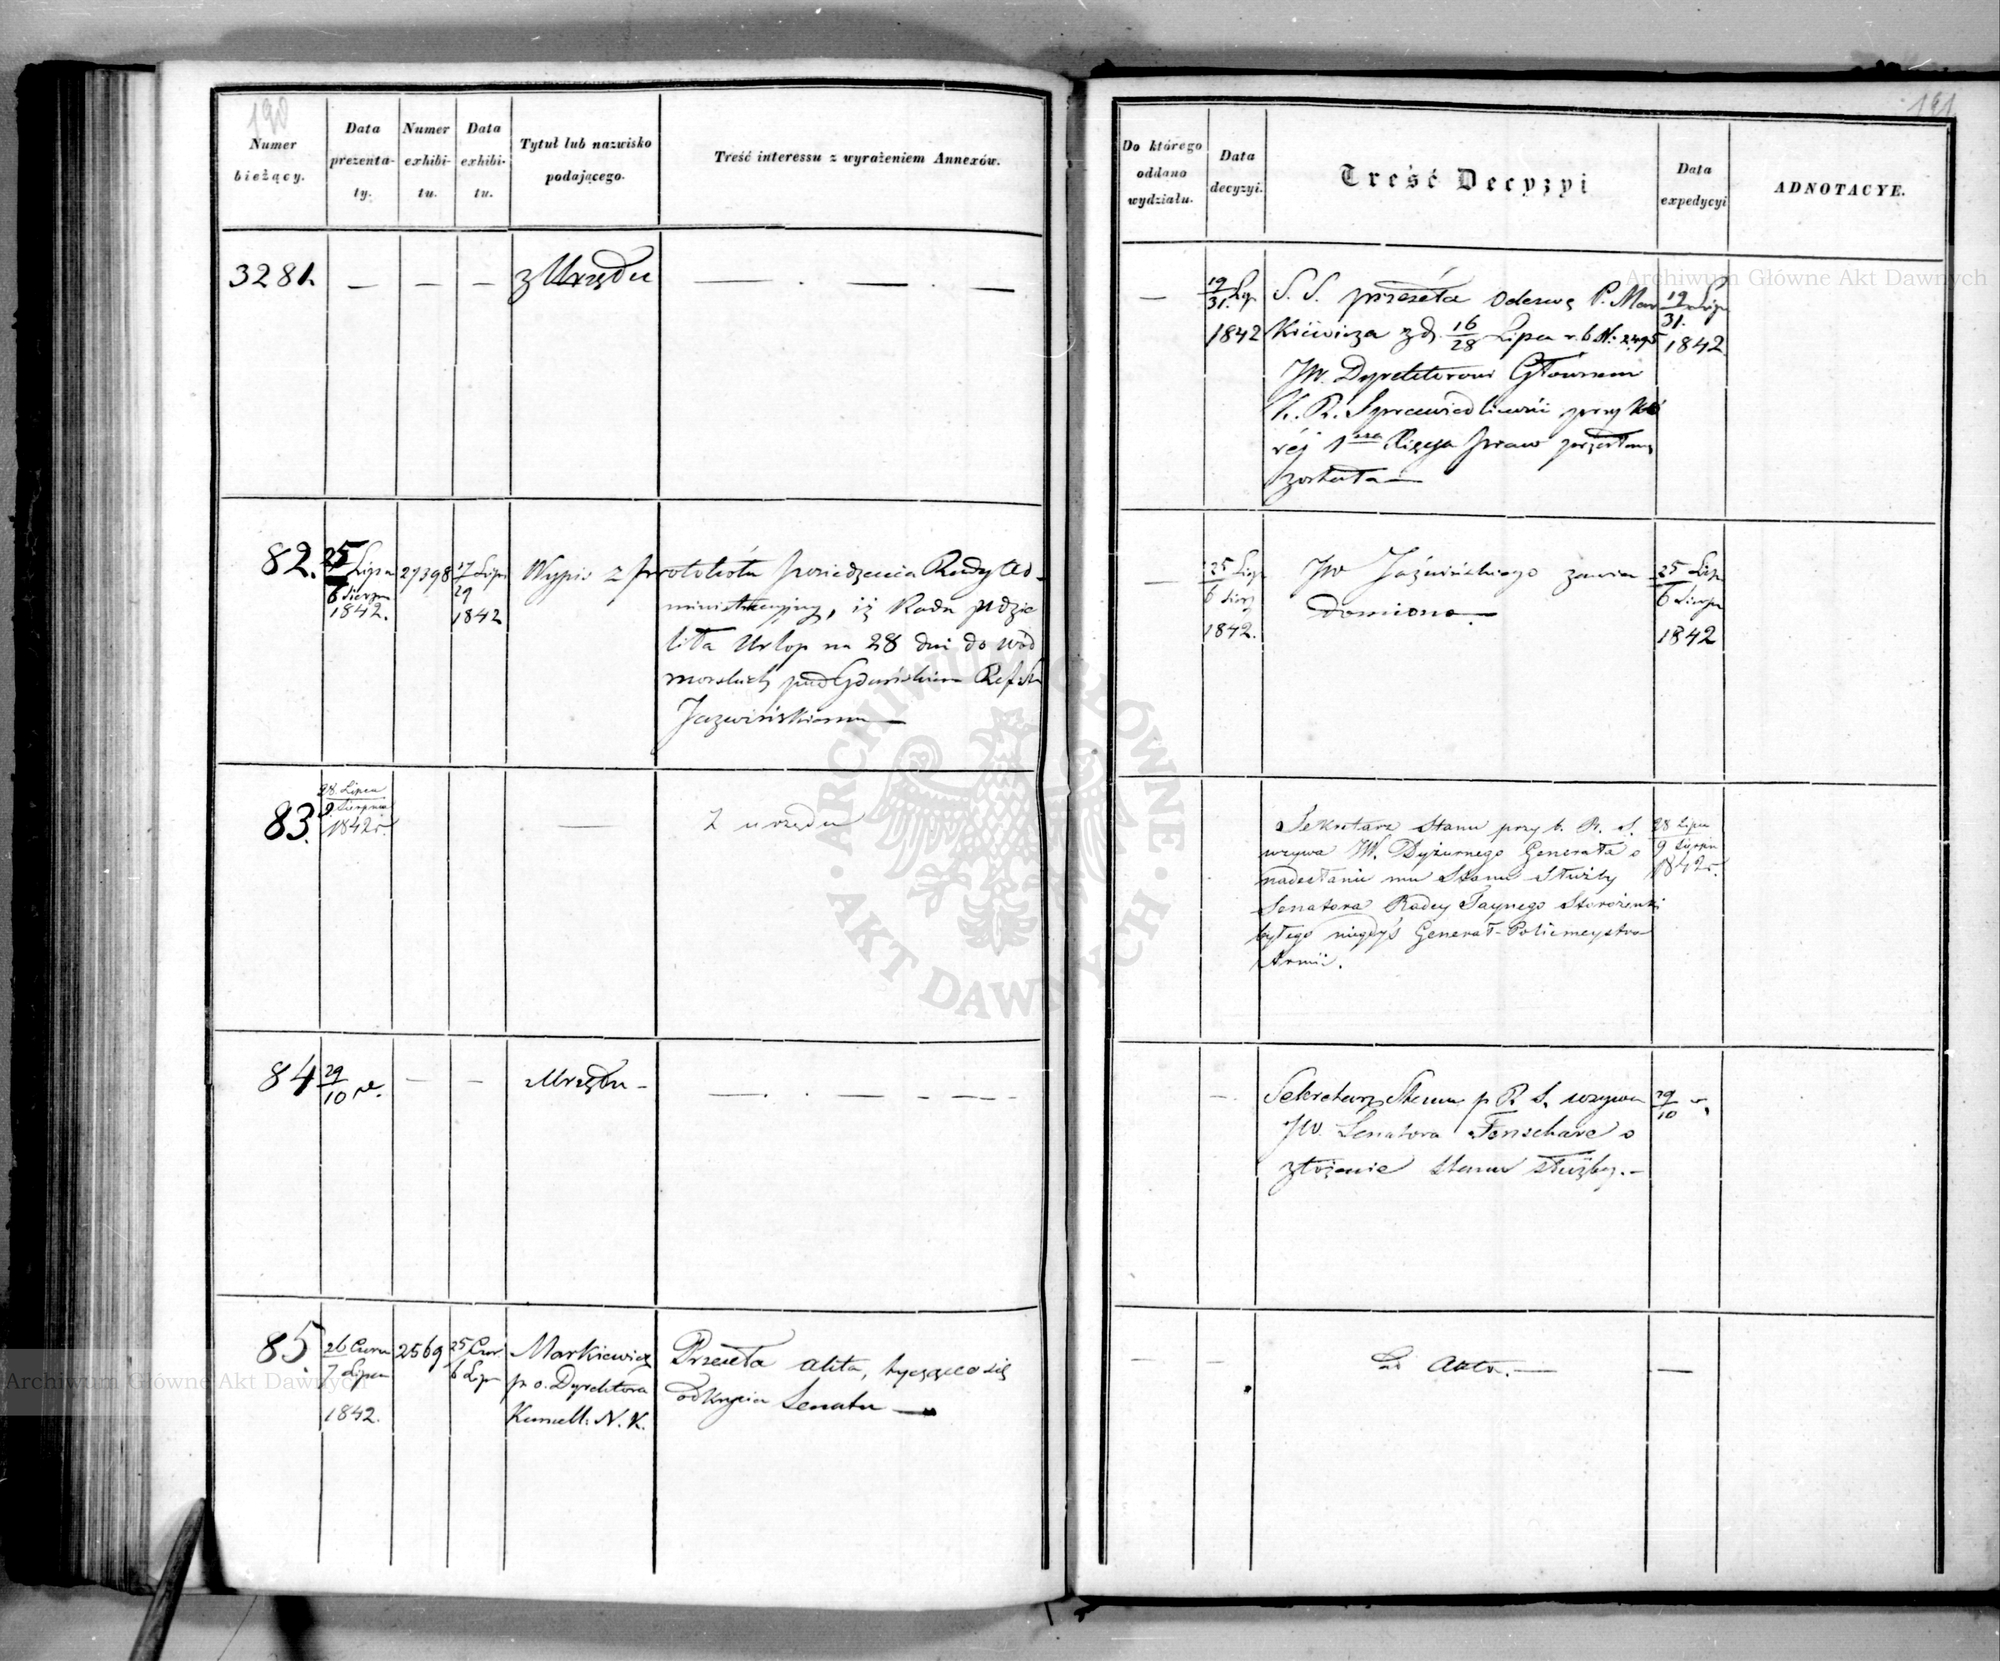 190
Numer
bieżący.
Data
prezenta-
ty.
Numer
exhibi-
tu.
Data
exhibi-
tu.
Tytuł lub nazwisko
podającego.
Treść interessu z wyrażeniem Annexów.
3281.
—
—
—
z Urzędu
— . — . —
82.
25 Lipca
6 Sierpn
1842.
27398
17 Lipc
29
1842
Wypis z protokółu posiedzenia Rady Ad-
ministracyjnej, iż Rada udzie
liła Urlop na 28 dni do wód
morskich pod Gdańskiem
Jaźwińskiemu —
83.
28 Lipca
9 Sierpnia
1842 r.
—
Z urzędu
84
29
10
—
—
z Urzędu —
— . — . — - — - —
85.
26 Czerw
7 Lipca
1842.
2569
25 Czer.
6 Lip
Markiewicz
p. o. Dyrektora
Kancell. N. K.
Przeseła akta, tyczące się
odkrycia Senatu —
191
Do którego
oddano
wydziału.
Data
decyzyi.
Treść Decyzyi
Data
expedycyi
ADNOTACYE.
—
19 Lip
31.
1842
S. S. przeseła Odezwę P. Mar
kiewicza z d. 16/28 Lipca r. b. N: 2495
JW. Dyrektorowi Głównem
K. R. Sprawiedliwości przy któ
rej 1sza Księga Spraw przesłaną
została —
19 Lip
31.
1842
—
25 Lip
6 Sierp
1842.
JW Jaźwińskiego zawia
domiono. —
25 Lip
6 Sierp
1842
Sekretarz Stanu przy b. R. S.
wzywa JW. Dyżurnego Generała o
nadesłanie mu Stanu Służby
Senatora Radcy Taynego Storożenki
byłego niegdyś Generał-Policmeystra
Armii.
28 Lipca
9 Sierpn
1842 r.
—
Sekretarz Stanu p R. S. wzywa
JW. Senatora Fonschave o
złożenie stanu służby. —
29
10
—
—
Do Akt. —
—
Archiwum Główne Akt Dawnych
Archiwum Główne Akt Dawnych
ARCHIWUM GŁÓWNE · AKT DAWNYCH ·